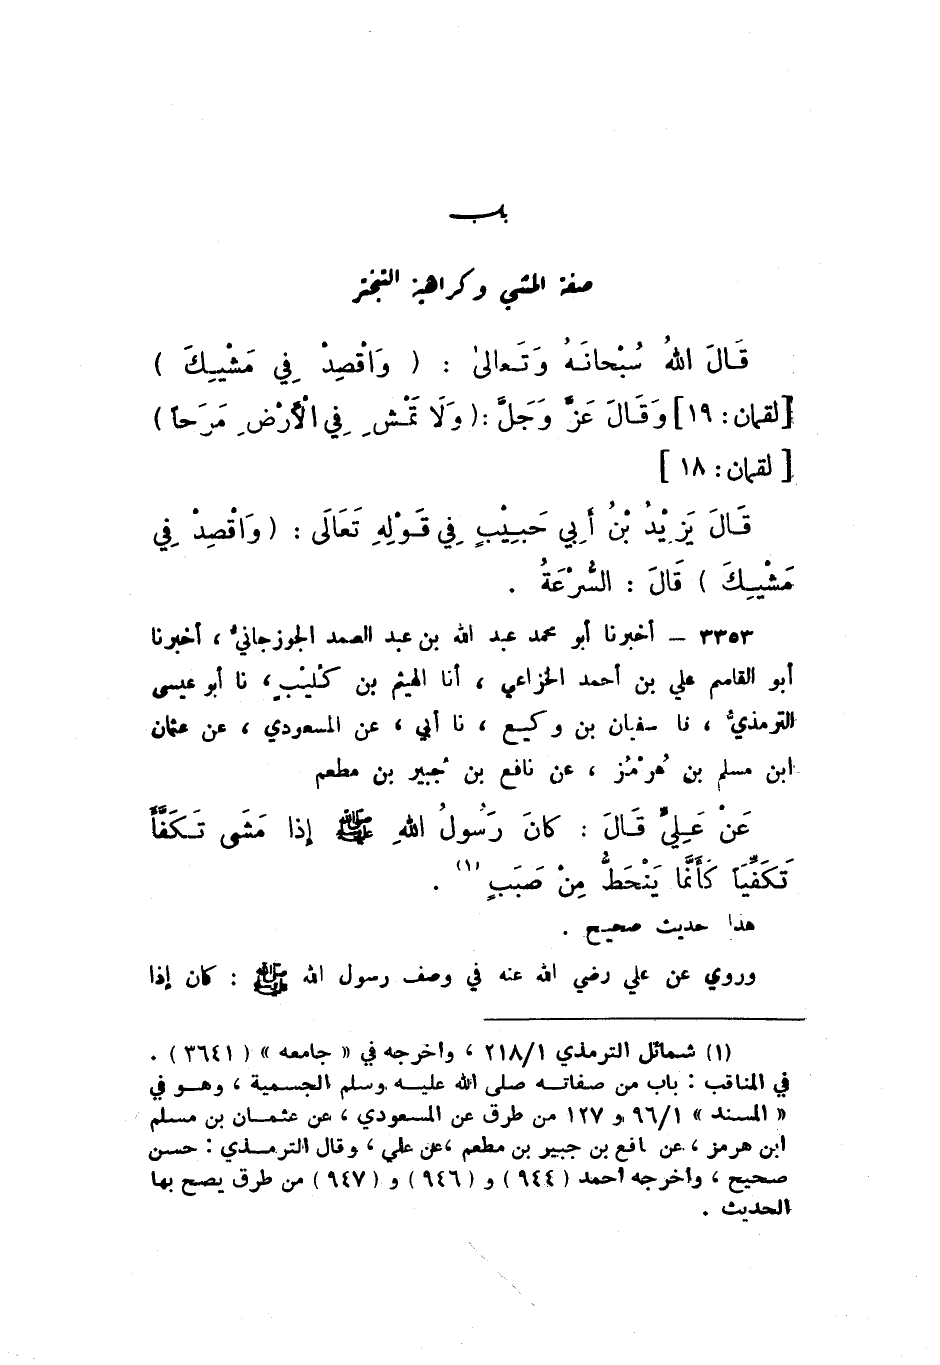 باب
صفة المشي وكراهية التبختر
قَالَ اللهُ سُبْحانَهُ وَتَعالىٰ : ( وَاقْصِدْ فِي مَشْيِكَ )
[ لقمان : ١٩ ] وَقَالَ عَزَّ وَجَلَّ : ( وَلَا تَمْشِ فِي الْأَرْضِ مَرَحاً )
[ لقمان : ١٨ ]
قَالَ يَزِيْدُ بْنُ أَبِي حَبِيْبٍ فِي قَوْلِهِ تَعَالَى : ( وَاقْصِدْ فِي
مَشْيِكَ ) قَالَ : السُّرْعَةُ .
٣٣٥٣ – أخبرنا أبو محمد عبد الله بن عبد الصمد الجوزجانيُّ ، أخبرنا
أبو القاسم علي بن أحمد الخزاعي ، أنا الهيثم بن كُلَيْبٍ ، نا أبو عيسى
الترمذيُّ ، نا سفيان بن وكيع ، نا أبي ، عن المسعودي ، عن عثمان
ابن مسلم بن هُرْمُز ، عن نافع بن جُبير بن مطعم
عَنْ عَلِيٍّ قَالَ : كانَ رَسُولُ اللهِ ﷺ إذا مَشَى تَكَفَّأَ
تَكَفِّيَاً كَأَنَّما يَنْحَطُّ مِنْ صَبَبٍ (١) .
هذا حديث صحيح .
وروي عن علي رضي الله عنه في وصف رسول الله ﷺ : كان إذا
(١) شمائل الترمذي ٢١٨/١ ، وأخرجه في « جامعه » ( ٣٦٤١ ) .
في المناقب : باب من صفاته صلى الله عليه وسلم الجسمية ، وهو في
« المسند » ٩٦/١ و ١٢٧ من طرق عن المسعودي ، عن عثمان بن مسلم
ابن هرمز ، عن نافع بن جبير بن مطعم ، عن علي ، وقال الترمذي : حسن
صحيح ، وأخرجه أحمد ( ٩٤٤ ) و ( ٩٤٦ ) و ( ٩٤٧ ) من طرق يصح بها
الحديث .